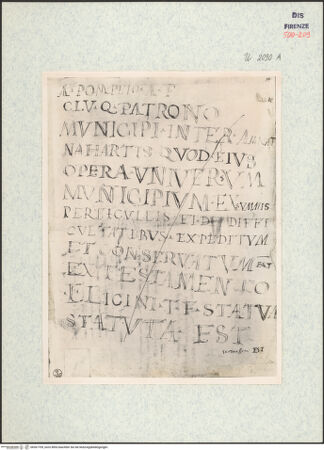 DIS
FIRENZE
500-209
U 2090 A
A·POMPEIO·A·F
CLV·Q·PATRONO
MVNICIPI·INTER·AMNAT
NAHARTIS QVOD·EIVS
OPERA·VNIVERSVM
MVNICIPIVM·EX·VMMIS
PERICVLIS·ET·DIFFI
CVLTATIBVS·EXPEDITVM
ET CONSERVATVM EST
EX TESTAMENTO
ELICINI·T·F·STATVA
STATVTA EST